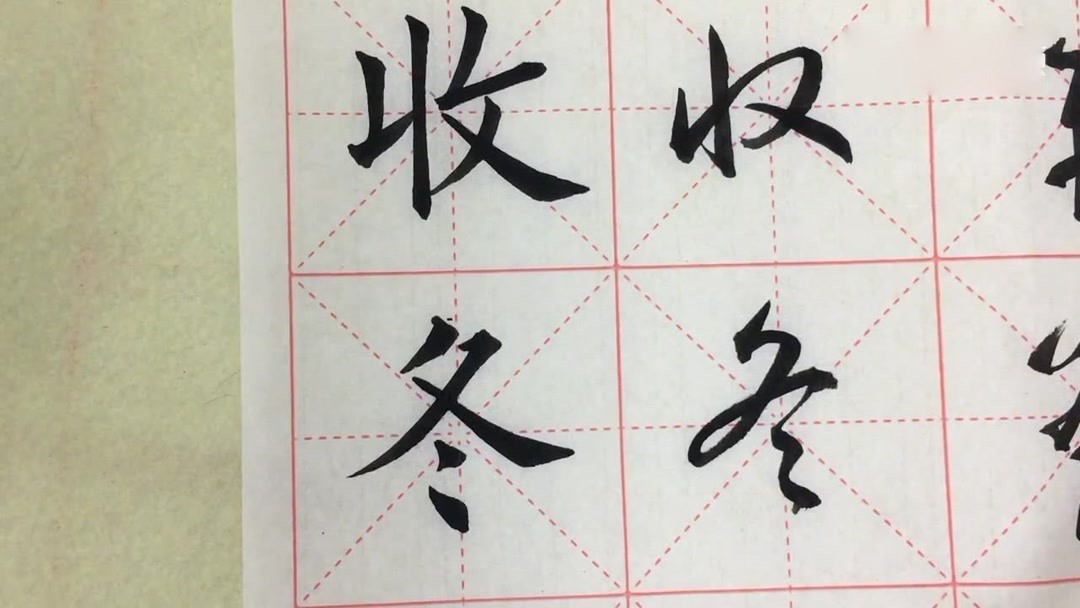 收收
冬冬